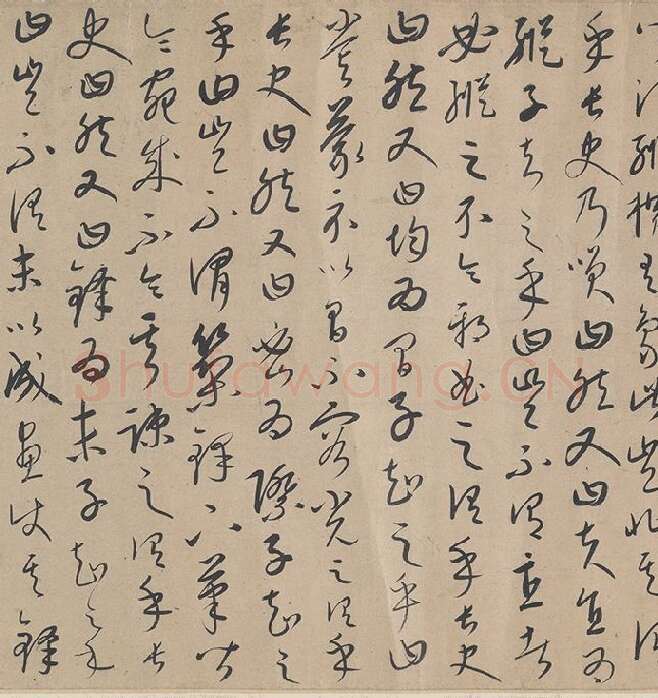 縱橫有象此豈非其謂
乎長史乃笑曰然又曰夫直為
縱子知之乎曰豈不謂直者
必縱之不令邪曲之謂乎長史
曰然又曰均為間子知之乎曰
嘗蒙示以間不容光之謂乎
長史曰然又曰密為際子知之
乎曰豈不謂築鋒下筆皆
令宛成不令其疎之謂乎長
史曰然又曰鋒為末子知之乎
曰豈不謂末以成畫使其鋒
Shufawang.CN